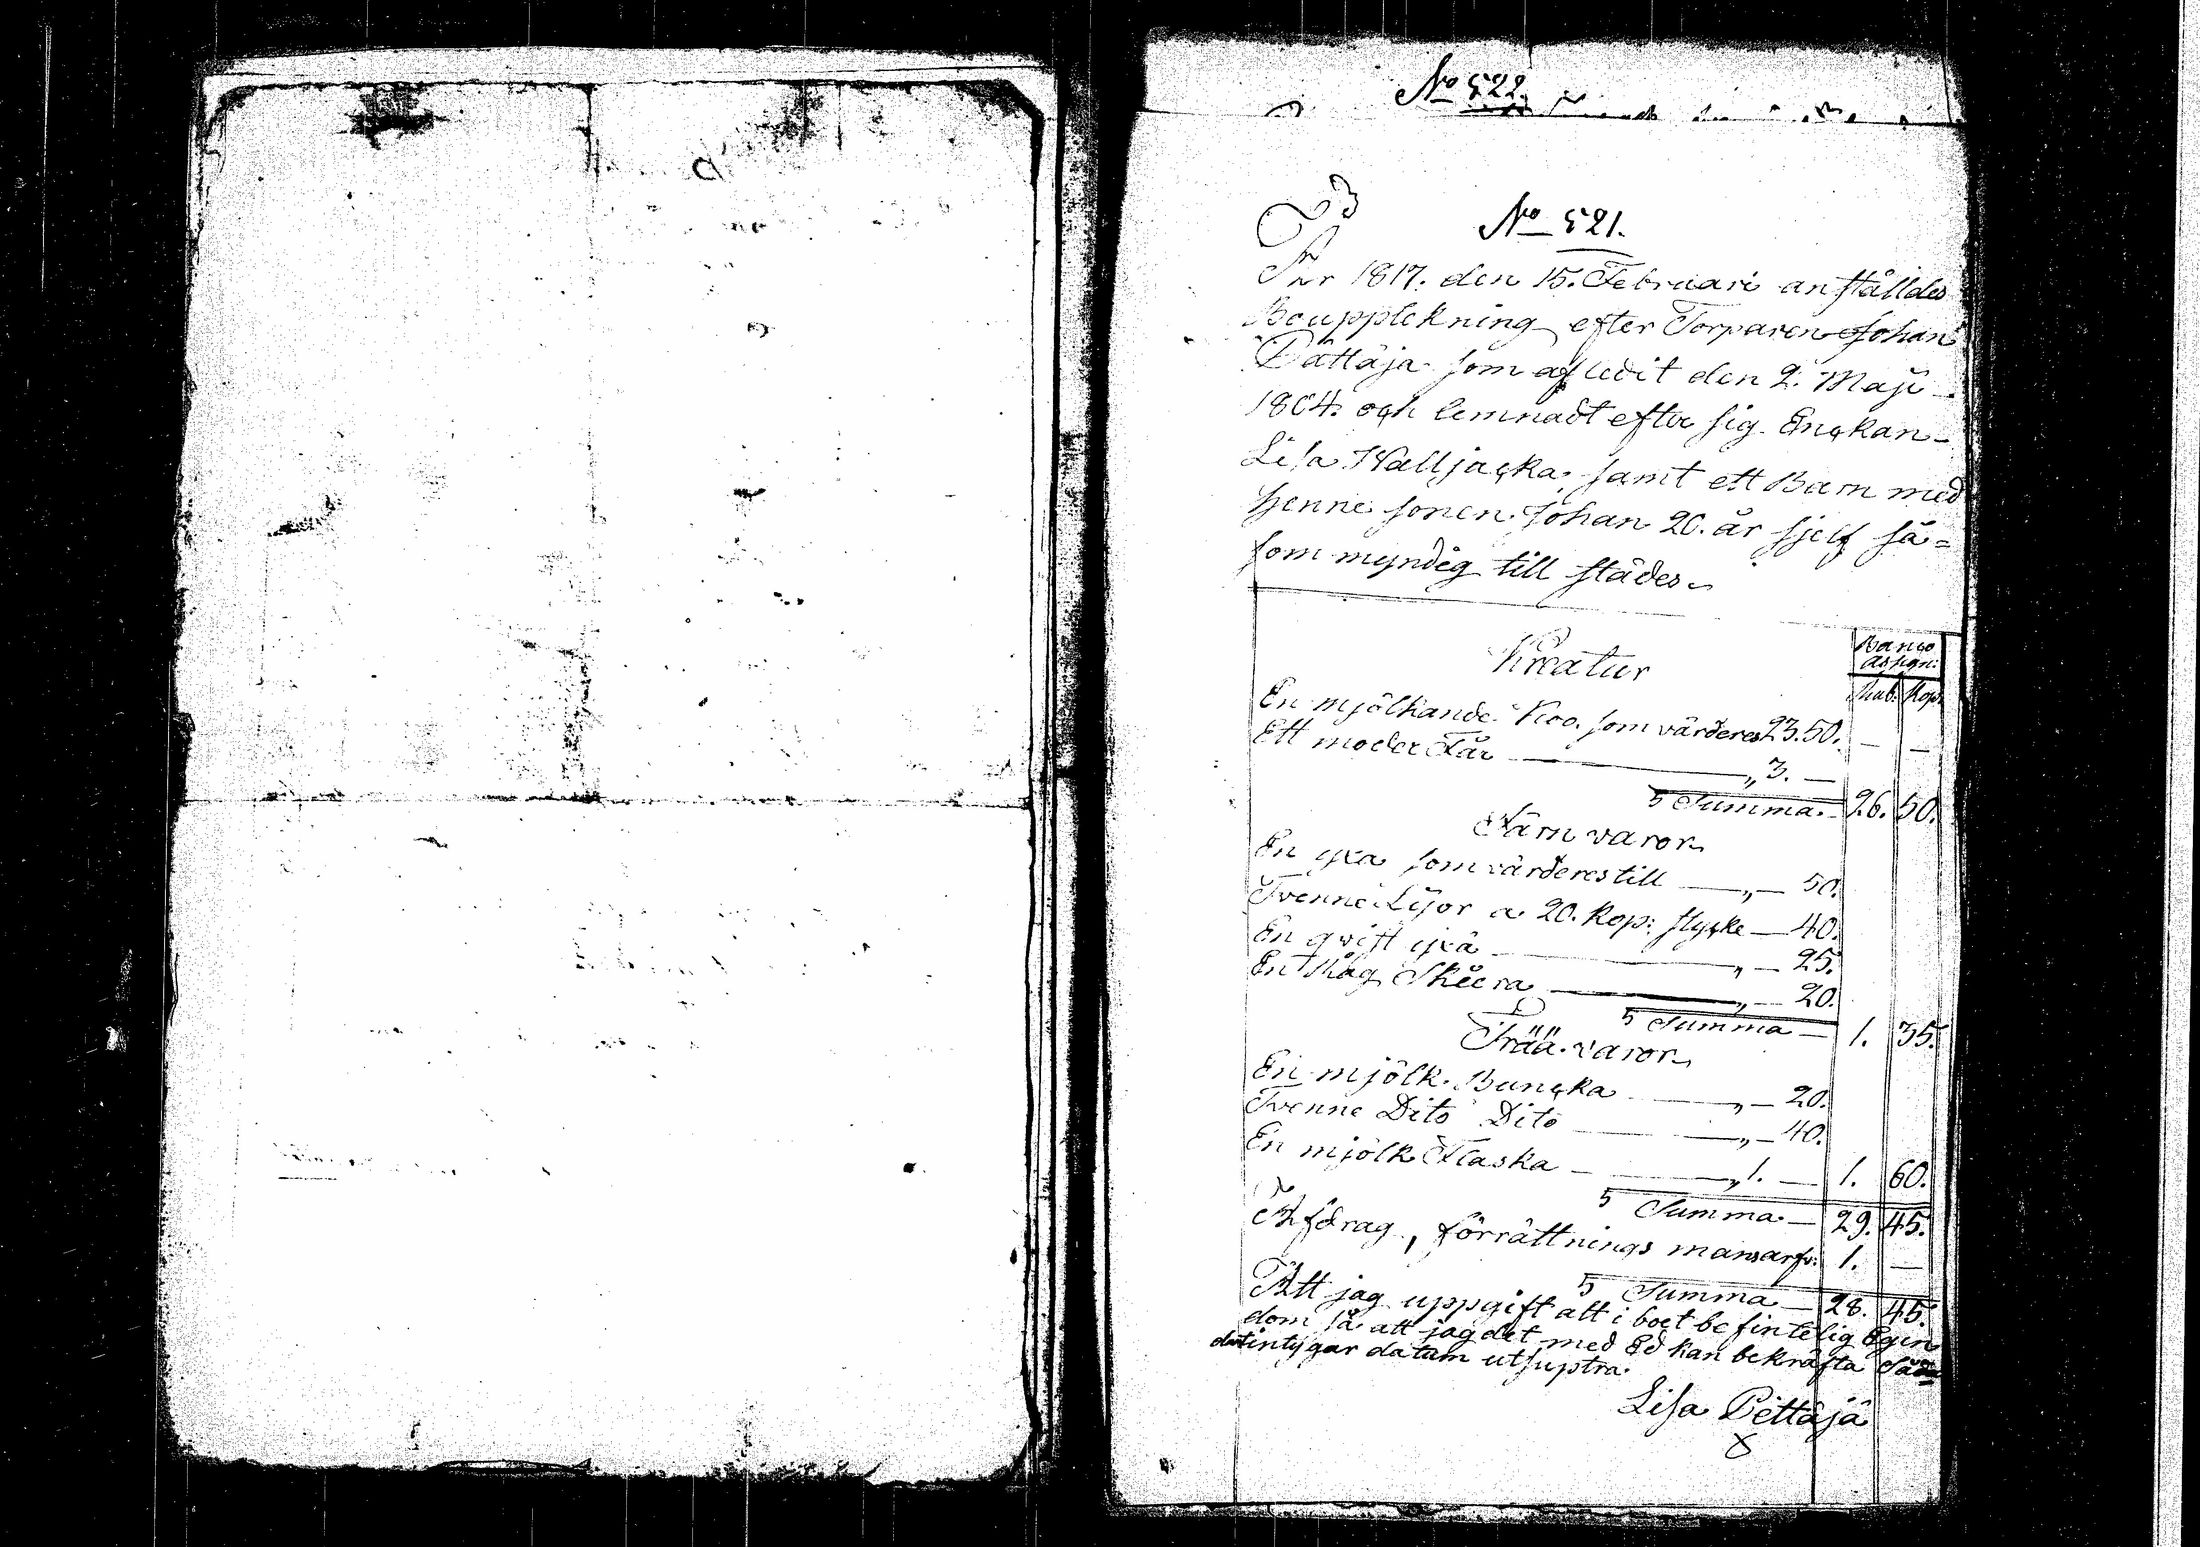 No 522.
No 521.
År 1817. den 15. Februari anställdes
Bouppteckning efter Torparen Johan
Pättäja som afledit den 2. Maji
1804. och lemnadt efter sig Enckan
Lisa Walljacka, samt ett Barn med
henne sonen Johan 20. år sjelf så=
som myndig till städes
Kreatur
Banco
assgn:
Rub. Kop.
En mjölkande Koo. som värderes 23.50. — —
Ett moder Får — " 3. —
Summa. 26. 50.
Järn varor
En yxa som värderes till — " — 50.
Tvenne Lijor a 20. Kop: stycke — 40.
En qvist yxa — " — 25.
En Skäg Skiera — " — 20.
Summa — 1. 35.
Trää varor
En mjölk Buncka — " — 20.
Tvenne Dito Dito — " — 40.
En mjölk Flaska — " 1. — 1. 60.
Summa — 29. 45.
Afdrag, förrättnings mansarfv: 1. —
Summa — 28. 45.
Att jag uppgift att i boet befintelig Egen
dom så att jag det med Ed kan bekräfta
datum utsuptra.
Lisa Pettäjä